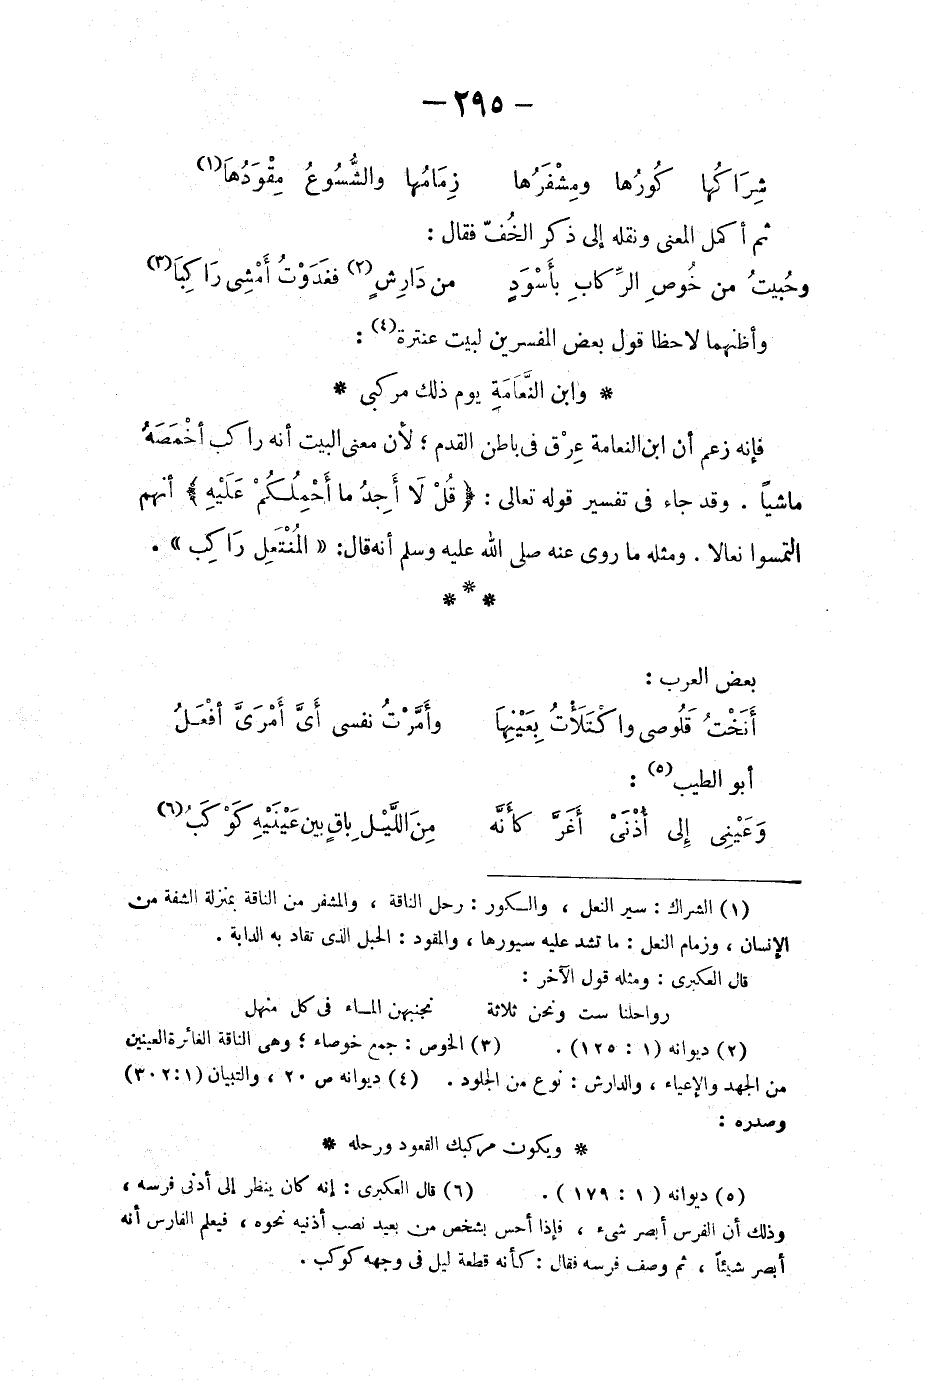 — ٢٩٥ —
شِرَاكُها كُورُها ومِشْفَرُها زِمَامُها والشُّسُوعُ مِقْوَدُهَا (١)
ثم أكمل المعنى ونقله إلى ذكر الخُفّ فقال :
وحُبيتُ من خُوصِ الرِّكابِ بأَسْوَدٍ من دَارِشٍ (٢) فغَدَوْتُ أَمْشِى رَاكِبَا (٣)
وأظنهما لاحظا قول بعض المفسرين لبيت عنترة (٤) :
* وابن النَّعَامَةِ يوم ذلك مركبى *
فإنه زعم أن ابن النعامة عِرْق فى باطن القدم ؛ لأن معنى البيت أنه راكب أخْمَصَهُ
ماشياً . وقد جاء فى تفسير قوله تعالى : ﴿ قُلْ لَا أَجِدُ ما أَحْمِلُكُمْ عَلَيْهِ ﴾ أنهم
التمسوا نعالا . ومثله ما روى عنه صلى الله عليه وسلم أنه قال: « الْمُنْتَعِل رَاكِب » .
* * *
بعض العرب :
أَنَخْتُ قَلُوصى واكْتَلَأْتُ بِعَيْنِهَا وأَمَّرْتُ نفسى أَىَّ أَمْرَىَّ أفْعَلُ
أبو الطيب (٥) :
وَعَيْنِى إِلى أُذْنَىْ أَغَرَّ كأنَّه مِنَ اللَّيْلِ باقٍ بين عَيْنَيْهِ كَوْكَبُ (٦)
(١) الشراك : سير النعل ، والكور : رحل الناقة ، والمشفر من الناقة بمنزلة الشفة من
الإنسان ، وزمام النعل : ما تشد عليه سيورها ، والمقود : الحبل الذى تقاد به الدابة .
قال العكبرى : ومثله قول الآخر :
رواحلنا ست ونحن ثلاثة نجنبهن الماء فى كل منهل
(٢) ديوانه (١ : ١٢٥) . (٣) الخوص : جمع خوصاء ؛ وهى الناقة الغائرة العينين
من الجهد والإعياء ، والدارش : نوع من الجلود . (٤) ديوانه ص ٢٠ ، والتبيان (١ : ٣٠٢)
وصدره :
* ويكون مركبك القعود ورحله *
(٥) ديوانه ( ١ : ١٧٩ ) . (٦) قال العكبرى : إنه كان ينظر إلى أذنى فرسه ،
وذلك أن الفرس أبصر شىء ، فإذا أحس بشخص من بعيد نصب أذنيه نحوه ، فيعلم الفارس أنه
أبصر شيئاً ، ثم وصف فرسه فقال : كأنه قطعة ليل فى وجهه كوكب .